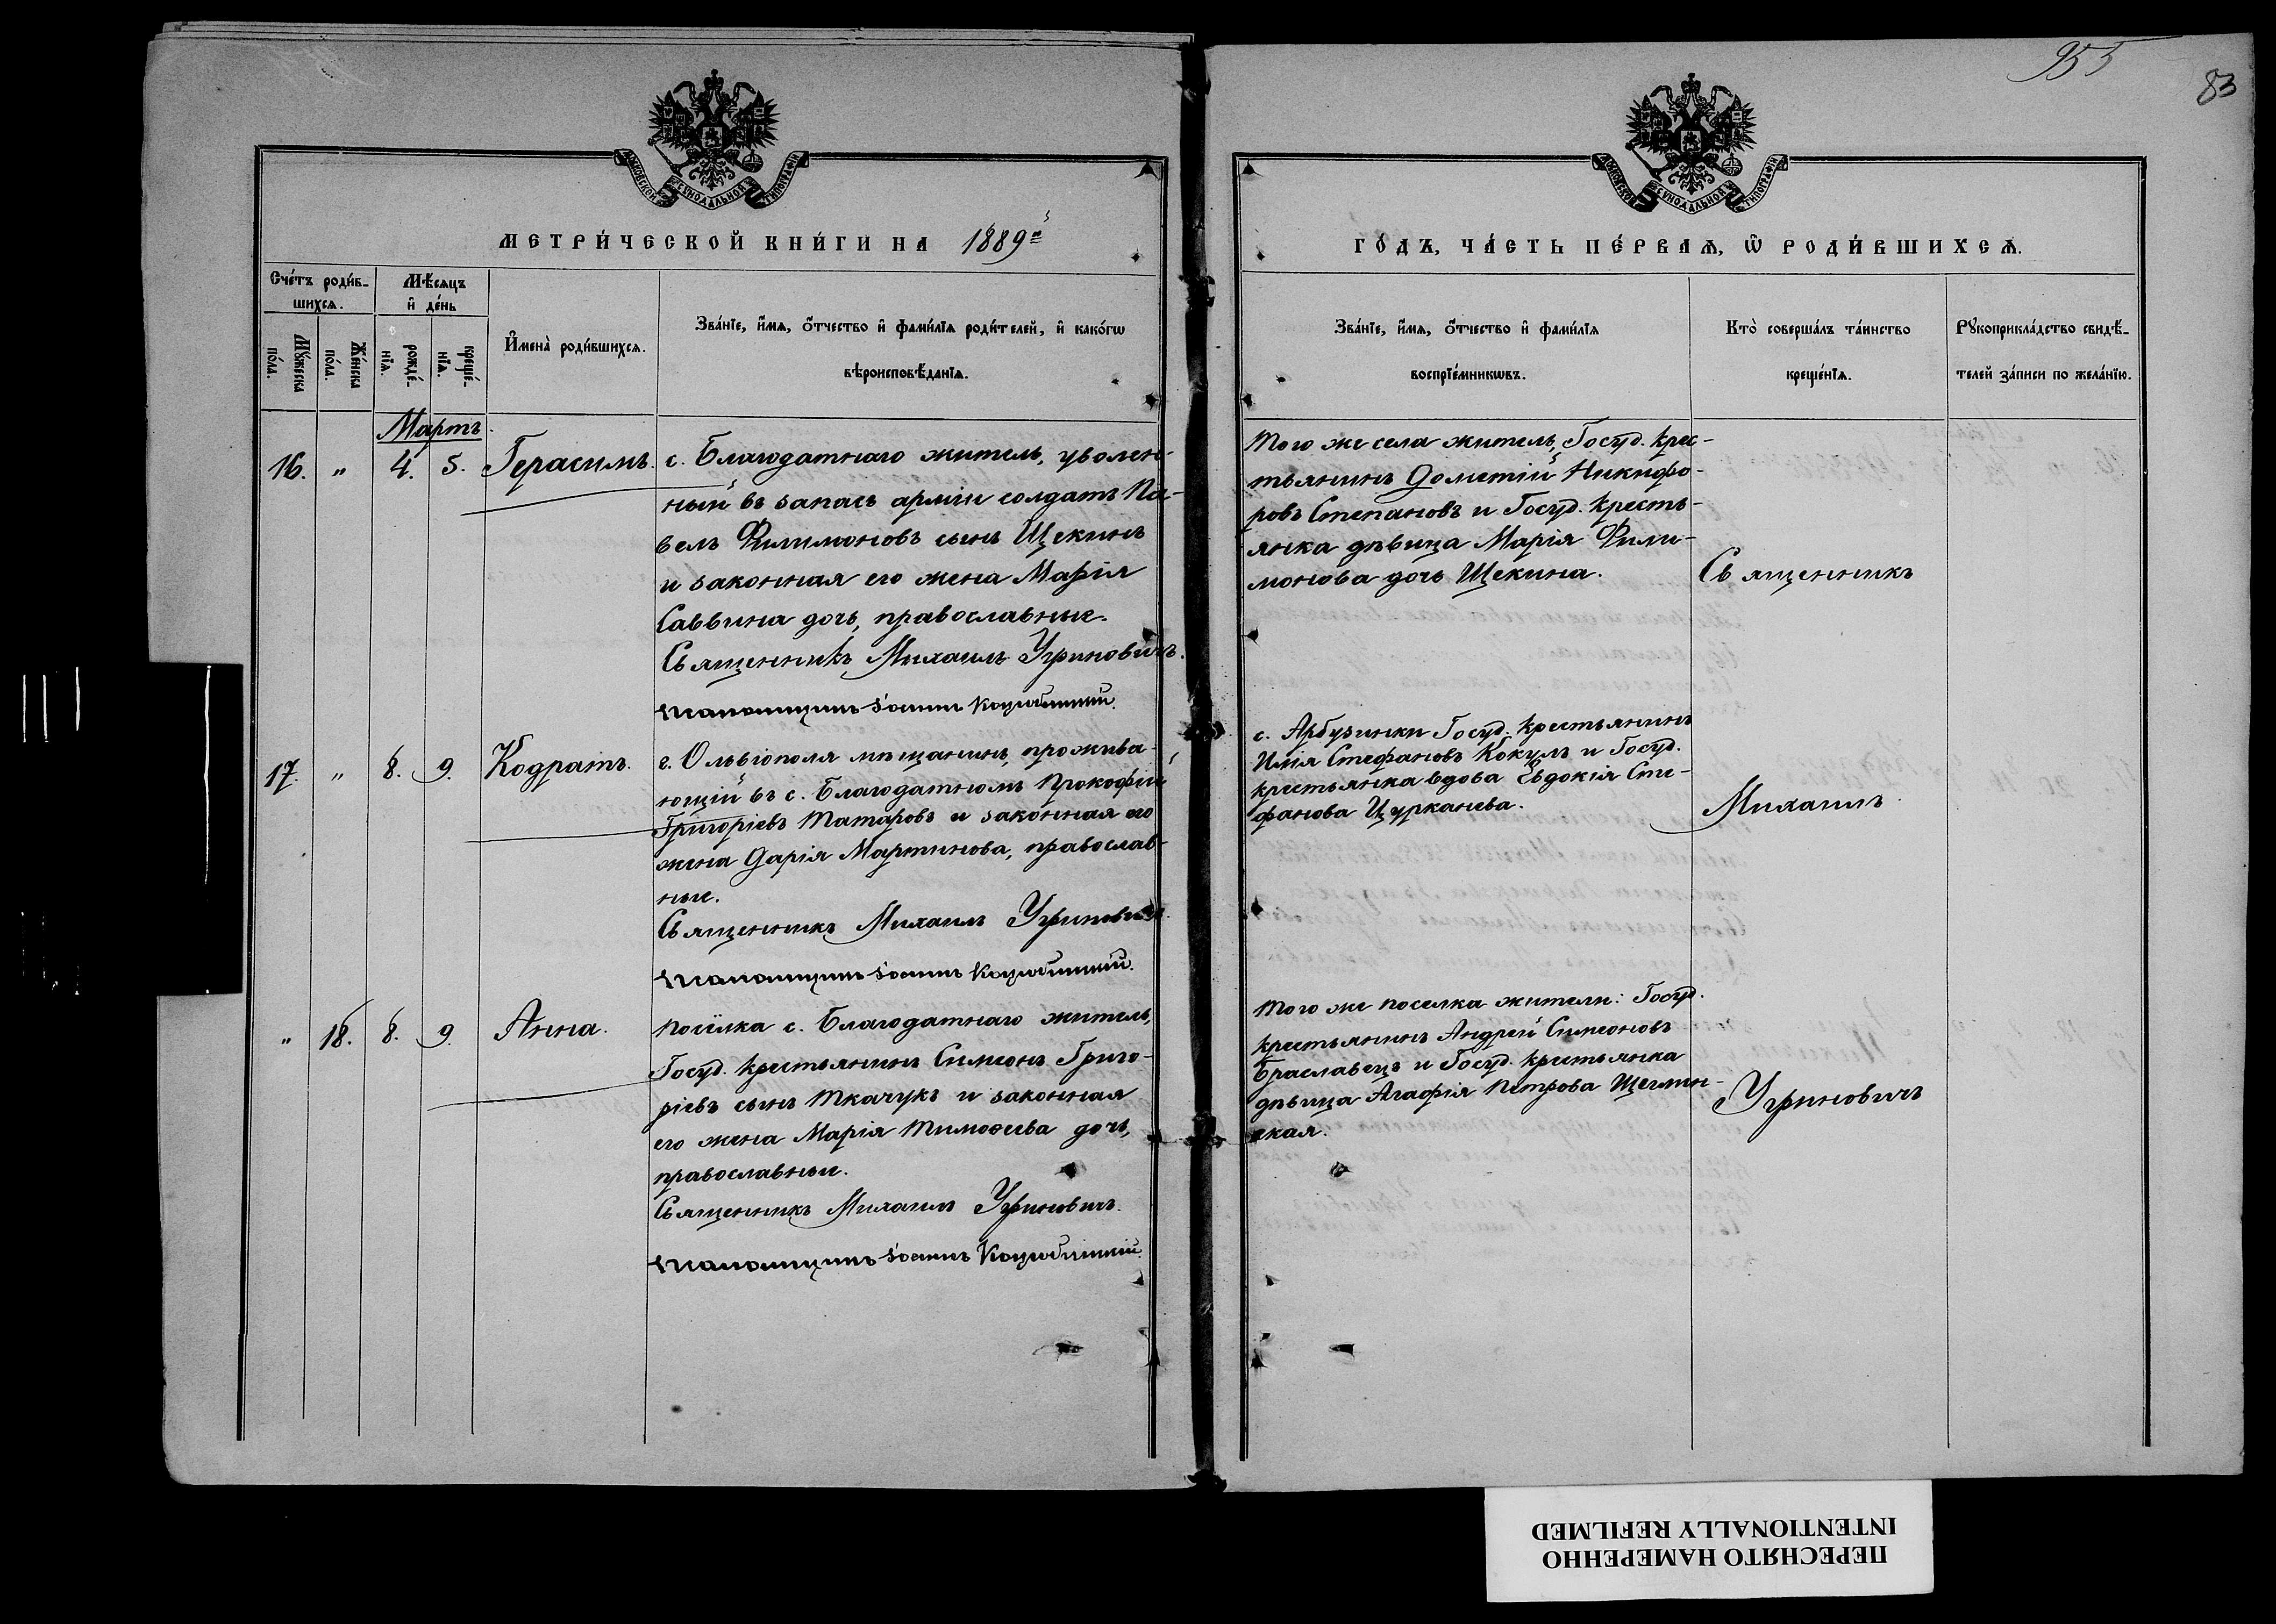 955
83
МОСКОВСКОЙ СѴНОДАЛЬНОЙ ТИПОГРАФІИ
МОСКОВСКОЙ СѴНОДАЛЬНОЙ ТИПОГРАФІИ
МЕТРИ́ЧЕСКОЙ КНИ́ГИ НА 1889й
ГО́ДЪ, ЧА́СТЬ ПЕ́РВАѦ, Ѿ РОДИ́ВШИХСѦ.
Сче́тъ роди́в-
шихсѧ.
Мꙋ́жеска по́ла.
Же́нска по́ла.
Мѣ́сяцъ
и҆ де́нь
рожде́-
нїѧ.
креще́-
нїѧ.
И҆мена̀ роди́вшихсѧ.
Зва́нїе, и҆́мѧ, ѻ҆́тчество и҆ фами́лїѧ роди́телей, и҆ како́гѡ
вѣроисповѣ́данїѧ.
Зва́нїе, и҆́мѧ, ѻ҆́тчество и҆ фами́лїѧ
воспрїе́мникѡвъ.
Кто̀ соверша́лъ та́инство
креще́нїѧ.
Рꙋкоприкла́дство свидѣ́-
телей за́писи по жела́нїю.
Мартъ
16. " 4. 5. Герасимъ.
с. Благодатнаго житель, уволен-
ный въ запасъ арміи солдатъ Па-
велъ Филимоновъ сынъ Щекинъ
и законная его жена Марія
Саввина дочь, православные.
Священникъ Михаилъ Угриновичъ.
Псаломщикъ Іоаннъ
Того же села житель, Госуд. крес-
тьянинъ Дометій Никифо-
ровъ Степановъ и Госуд. кресть-
янка дѣвица Марія Фили-
монова дочь Щекина.
Священникъ
17. " 8. 9. Кодратъ.
г. Ольвіополя мѣщанинъ, прожива-
ющій въ с. Благодатномъ Прокофій
Григоріевъ Татаровъ и законная его
жена Дарія Мартинова, православ-
ные.
Священникъ Михаилъ Угриновичъ
Псаломщикъ Іоаннъ
с. Арбузинки Госуд. крестьянинъ
Илія Стефановъ Кокулъ и Госуд.
крестьянка вдова Евдокія Сте-
фанова Цурканева.
Михаилъ
" 18. 8. 9. Анна.
Посёлка с. Благодатнаго житель,
Госуд. крестьянинъ Симеонъ Григо-
ріевъ сынъ Ткачукъ и законная
его жена Марія Тимоѳеева дочь,
православные.
Священникъ Михаилъ Угриновичъ.
Псаломщикъ Іоаннъ
Того же поселка жители: Госуд.
крестьянинъ Андрей Симеоновъ
Браславецъ и Госуд. крестьянка
дѣвица Агафія Петрова Щеглин-
ская.
Угриновичъ
ПЕРЕСНЯТО НАМЕРЕННО
INTENTIONALLY REFILMED